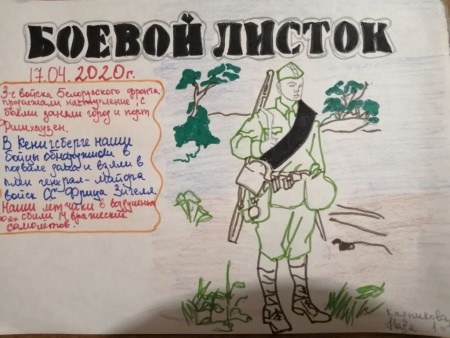 БОЕВОЙ ЛИСТОК
17.04. 2020г.
3-е войска Белорусского фронта
продолжали наступление, с
боями заняли город и порт
Фишхаузен.
В Кенигсберге наши
бойцы обнаружили в
подвале дома и взяли в
плен генерал-майора
войск СС-Фрица Зигеля.
Наши летчики в воздушных
боях сбили 14 вражеских
самолетов.